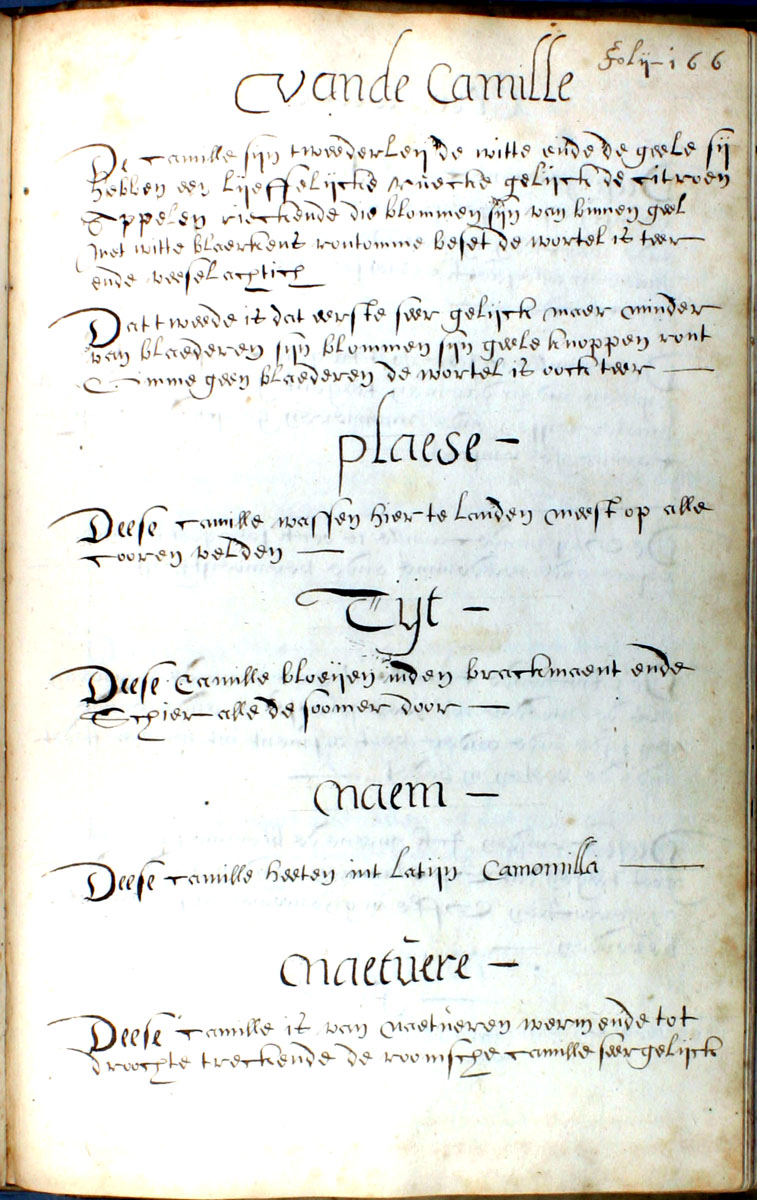 Folij 166
Vande Camille
De Camille sijn tweederleij de witte ende de geele sij
hebben een lijeffelijcke ruecke gelijck de Citroen
Appelen rieckende die blommen sijn van binnen geel
met witte blaerkens rontomme beset de wortel is teer
ende veeselachtich
Dat tweede is dat eerste seer gelijck maer minder
van blaederen sijn blommen sijn geele knoppen ront
Omme geen blaederen de wortel is oock teer —
plaese —
Deese Camille wassen hier te landen meest op alle
Cooren velden —
Tijt —
Deese Camille bloeijen inden brackmaent ende
Schier alle de soomer door —
Naem —
Deese Camille heeten int Latijn Camomilla —
Naetuere —
Deese Camille is van Naetueren werm ende tot
droochte treckende de roomsche Camille seer gelijck